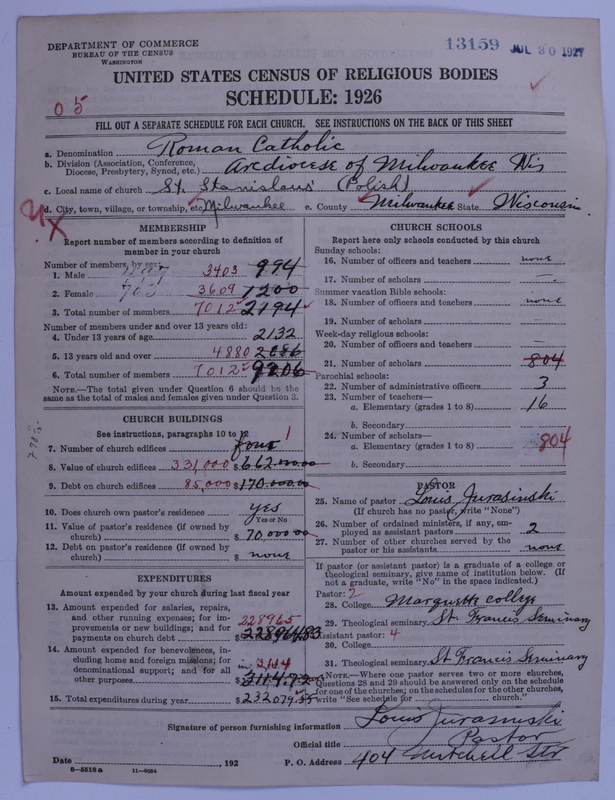 DEPARTMENT OF COMMERCE
BUREAU OF THE CENSUS
WASHINGTON
13159 JUL 30 1927
UNITED STATES CENSUS OF RELIGIOUS BODIES
SCHEDULE: 1926
05
FILL OUT A SEPARATE SCHEDULE FOR EACH CHURCH. SEE INSTRUCTIONS ON THE BACK OF THIS SHEET
a. Denomination Roman Catholic
b. Division (Association, Conference, Diocese, Presbytery, Synod, etc.) Arcdiocese of Milwaukee Wis
c. Local name of church St. Stanislaus' (Polish)
d. City, town, village, or township, etc. Milwaukee e. County Milwaukee State Wisconsin
MEMBERSHIP
Report number of members according to definition of
member in your church
Number of members, by sex:
1. Male 3403 994
2. Female 3609 1200
3. Total number of members 7012 2194
Number of members under and over 13 years old:
4. Under 13 years of age 2132
5. 13 years old and over 4880
6. Total number of members 7012 9206
NOTE.—The total given under Question 6 should be the
same as the total of males and females given under Question 3.
CHURCH BUILDINGS
See instructions, paragraphs 10 to 12
7. Number of church edifices four 1
8. Value of church edifices 331,000 $ 662,000.00
9. Debt on church edifices 85,000 $ 170,000.00
10. Does church own pastor's residence yes
Yes or No
11. Value of pastor's residence (if owned by
church) $ 70,000 00
12. Debt on pastor's residence (if owned by
church) $ none
EXPENDITURES
Amount expended by your church during last fiscal year
13. Amount expended for salaries, repairs,
and other running expenses; for im-
provements or new buildings; and for
payments on church debt 228965 $
14. Amount expended for benevolences, in-
cluding home and foreign missions; for
denominational support; and for all
other purposes $
15. Total expenditures during year $ 232,079.55
CHURCH SCHOOLS
Report here only schools conducted by this church
Sunday schools:
16. Number of officers and teachers none
17. Number of scholars —
Summer vacation Bible schools:
18. Number of officers and teachers none
19. Number of scholars
Week-day religious schools:
20. Number of officers and teachers —
21. Number of scholars 804
Parochial schools:
22. Number of administrative officers 3
23. Number of teachers—
a. Elementary (grades 1 to 8) 16
b. Secondary
24. Number of scholars—
a. Elementary (grades 1 to 8) 804
b. Secondary
PASTOR
25. Name of pastor Louis Jurasinski
(If church has no pastor, write "None")
26. Number of ordained ministers, if any, em-
ployed as assistant pastors 2
27. Number of other churches served by the
pastor or his assistants none
If pastor (or assistant pastor) is a graduate of a college or
theological seminary, give name of institution below. (If
not a graduate, write "No" in the space indicated.)
Pastor: 2
28. College Marquette College
29. Theological seminary St. Francis Seminary
Assistant pastor: 4
30. College
31. Theological seminary St Francis Seminary
NOTE.—Where one pastor serves two or more churches,
Questions 28 and 29 should be answered only on the schedule
for one of the churches; on the schedules for the other churches,
write "See schedule for church."
Signature of person furnishing information Louis Jurasinski
Official title Pastor
Date , 192 P. O. Address 404 Mitchell Str
8—5518 a 11—9064